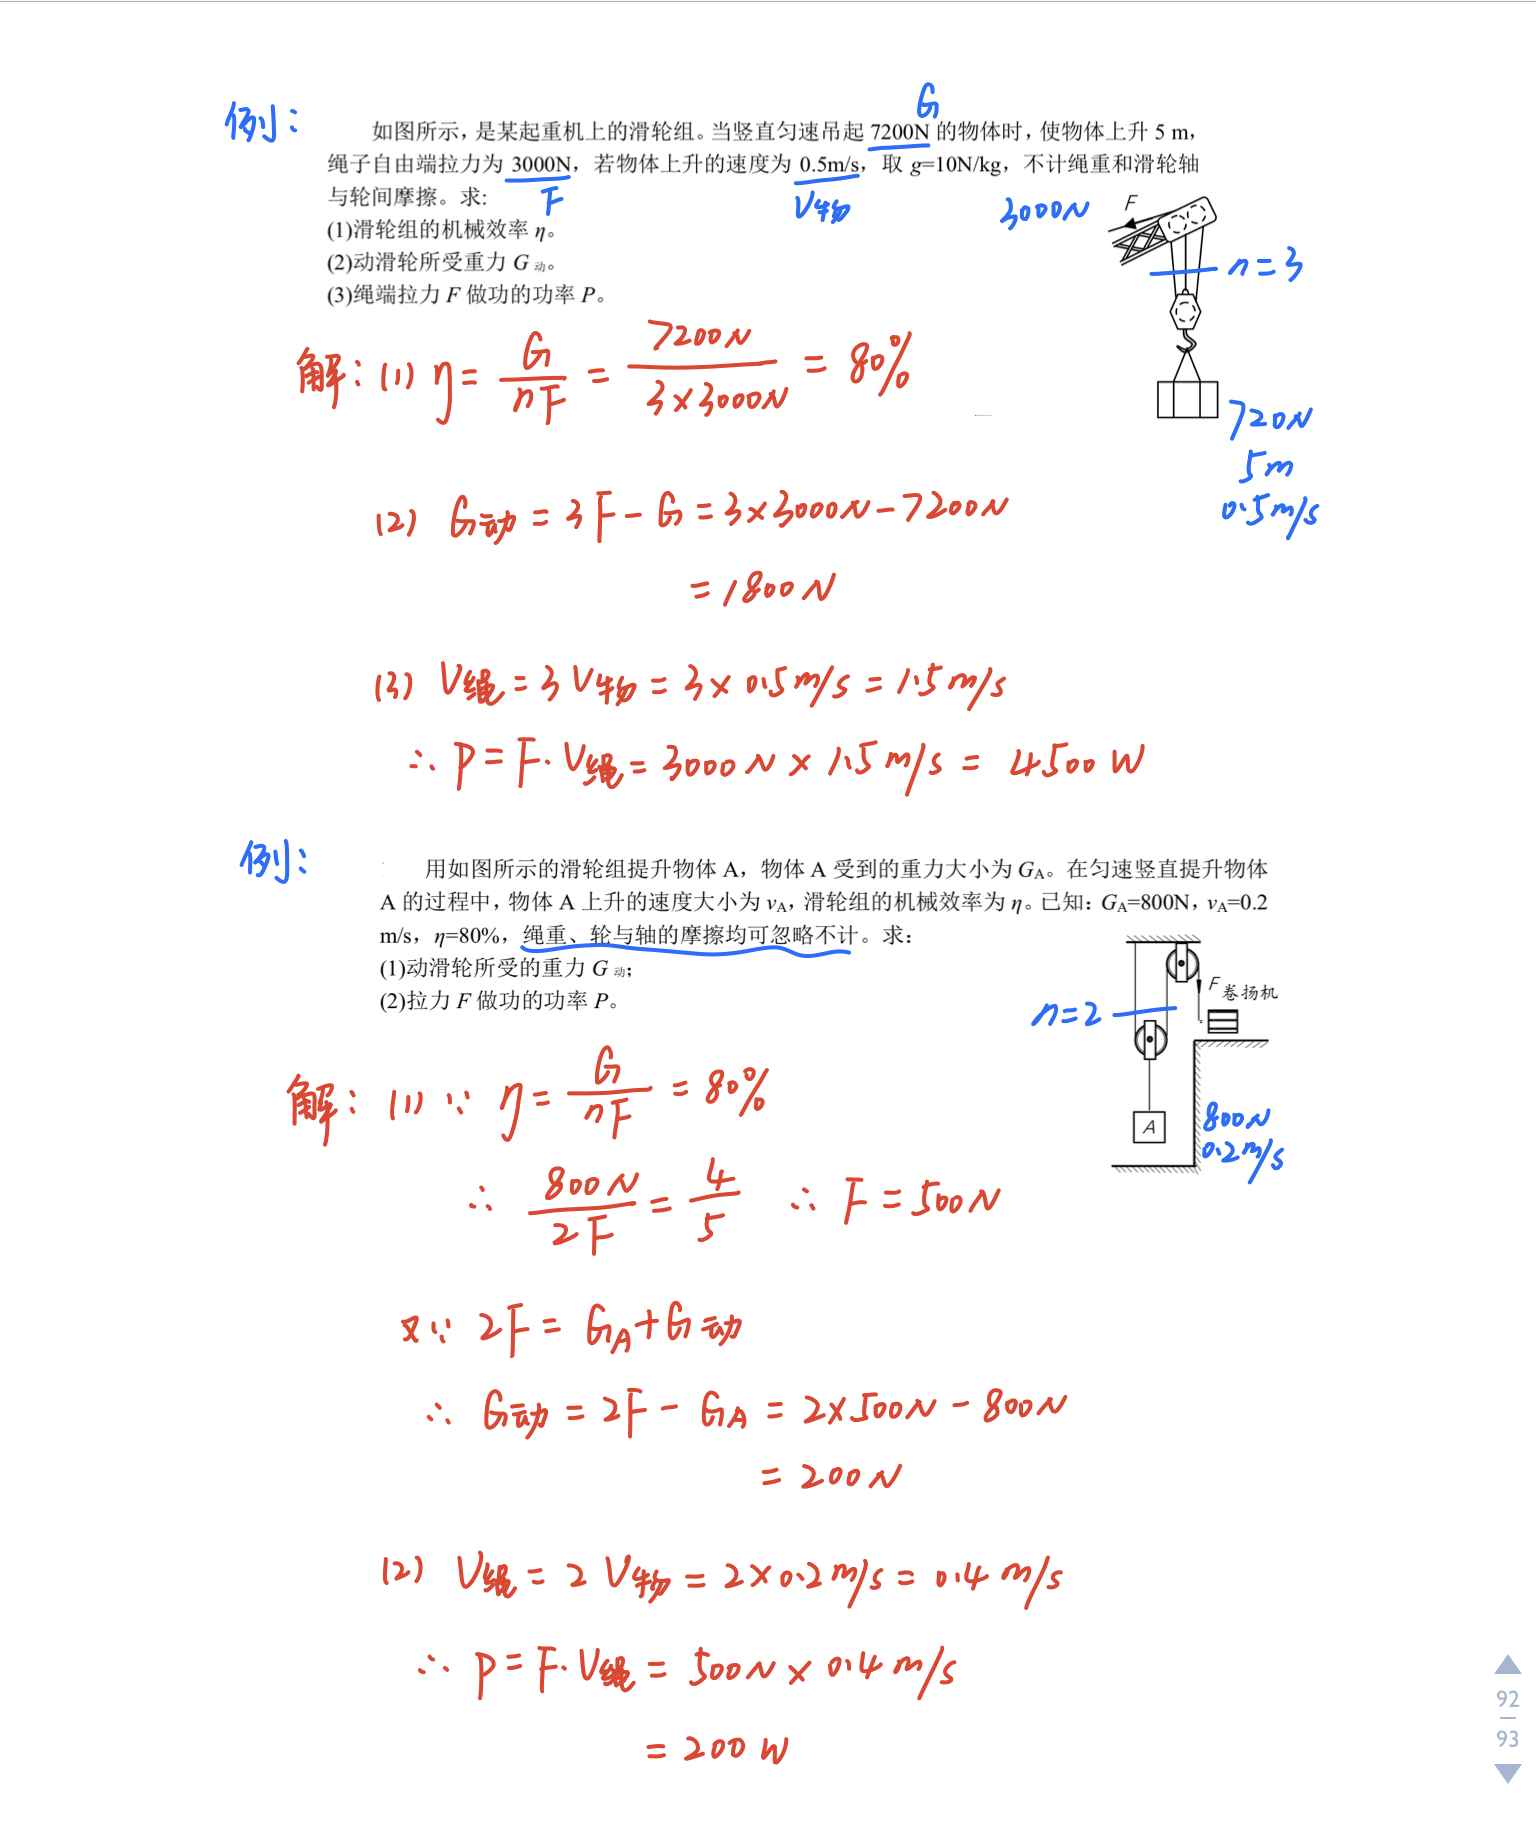 例：
G
如图所示，是某起重机上的滑轮组。当竖直匀速吊起 7200N 的物体时，使物体上升 5 m，
绳子自由端拉力为 3000N，若物体上升的速度为 0.5m/s，取 g=10N/kg，不计绳重和滑轮轴
与轮间摩擦。求：
F
V物
3000N
F
(1)滑轮组的机械效率 η。
(2)动滑轮所受重力 G动。
n=3
(3)绳端拉力 F 做功的功率 P。
解：(1) η = G/nF = 7200N/3×3000N = 80%
720N
5m
0.5m/s
(2) G动 = 3F-G = 3×3000N-7200N
=1800N
(3) V绳 = 3V物 = 3×0.5m/s = 1.5m/s
∴ P = F·V绳 = 3000N×1.5m/s = 4500W
例：
用如图所示的滑轮组提升物体 A，物体 A 受到的重力大小为 GA。在匀速竖直提升物体
A 的过程中，物体 A 上升的速度大小为 vA，滑轮组的机械效率为 η。已知：GA=800N，vA=0.2
m/s，η=80%，绳重、轮与轴的摩擦均可忽略不计。求：
(1)动滑轮所受的重力 G动；
(2)拉力 F 做功的功率 P。
F 卷扬机
n=2
A
800N
0.2m/s
解：(1) ∵ η = G/nF = 80%
∴ 800N/2F = 4/5 ∴ F = 500N
又∵ 2F = GA+G动
∴ G动 = 2F-GA = 2×500N-800N
= 200N
(2) V绳 = 2V物 = 2×0.2m/s = 0.4m/s
∴ P = F·V绳 = 500N×0.4m/s
= 200W
92
93